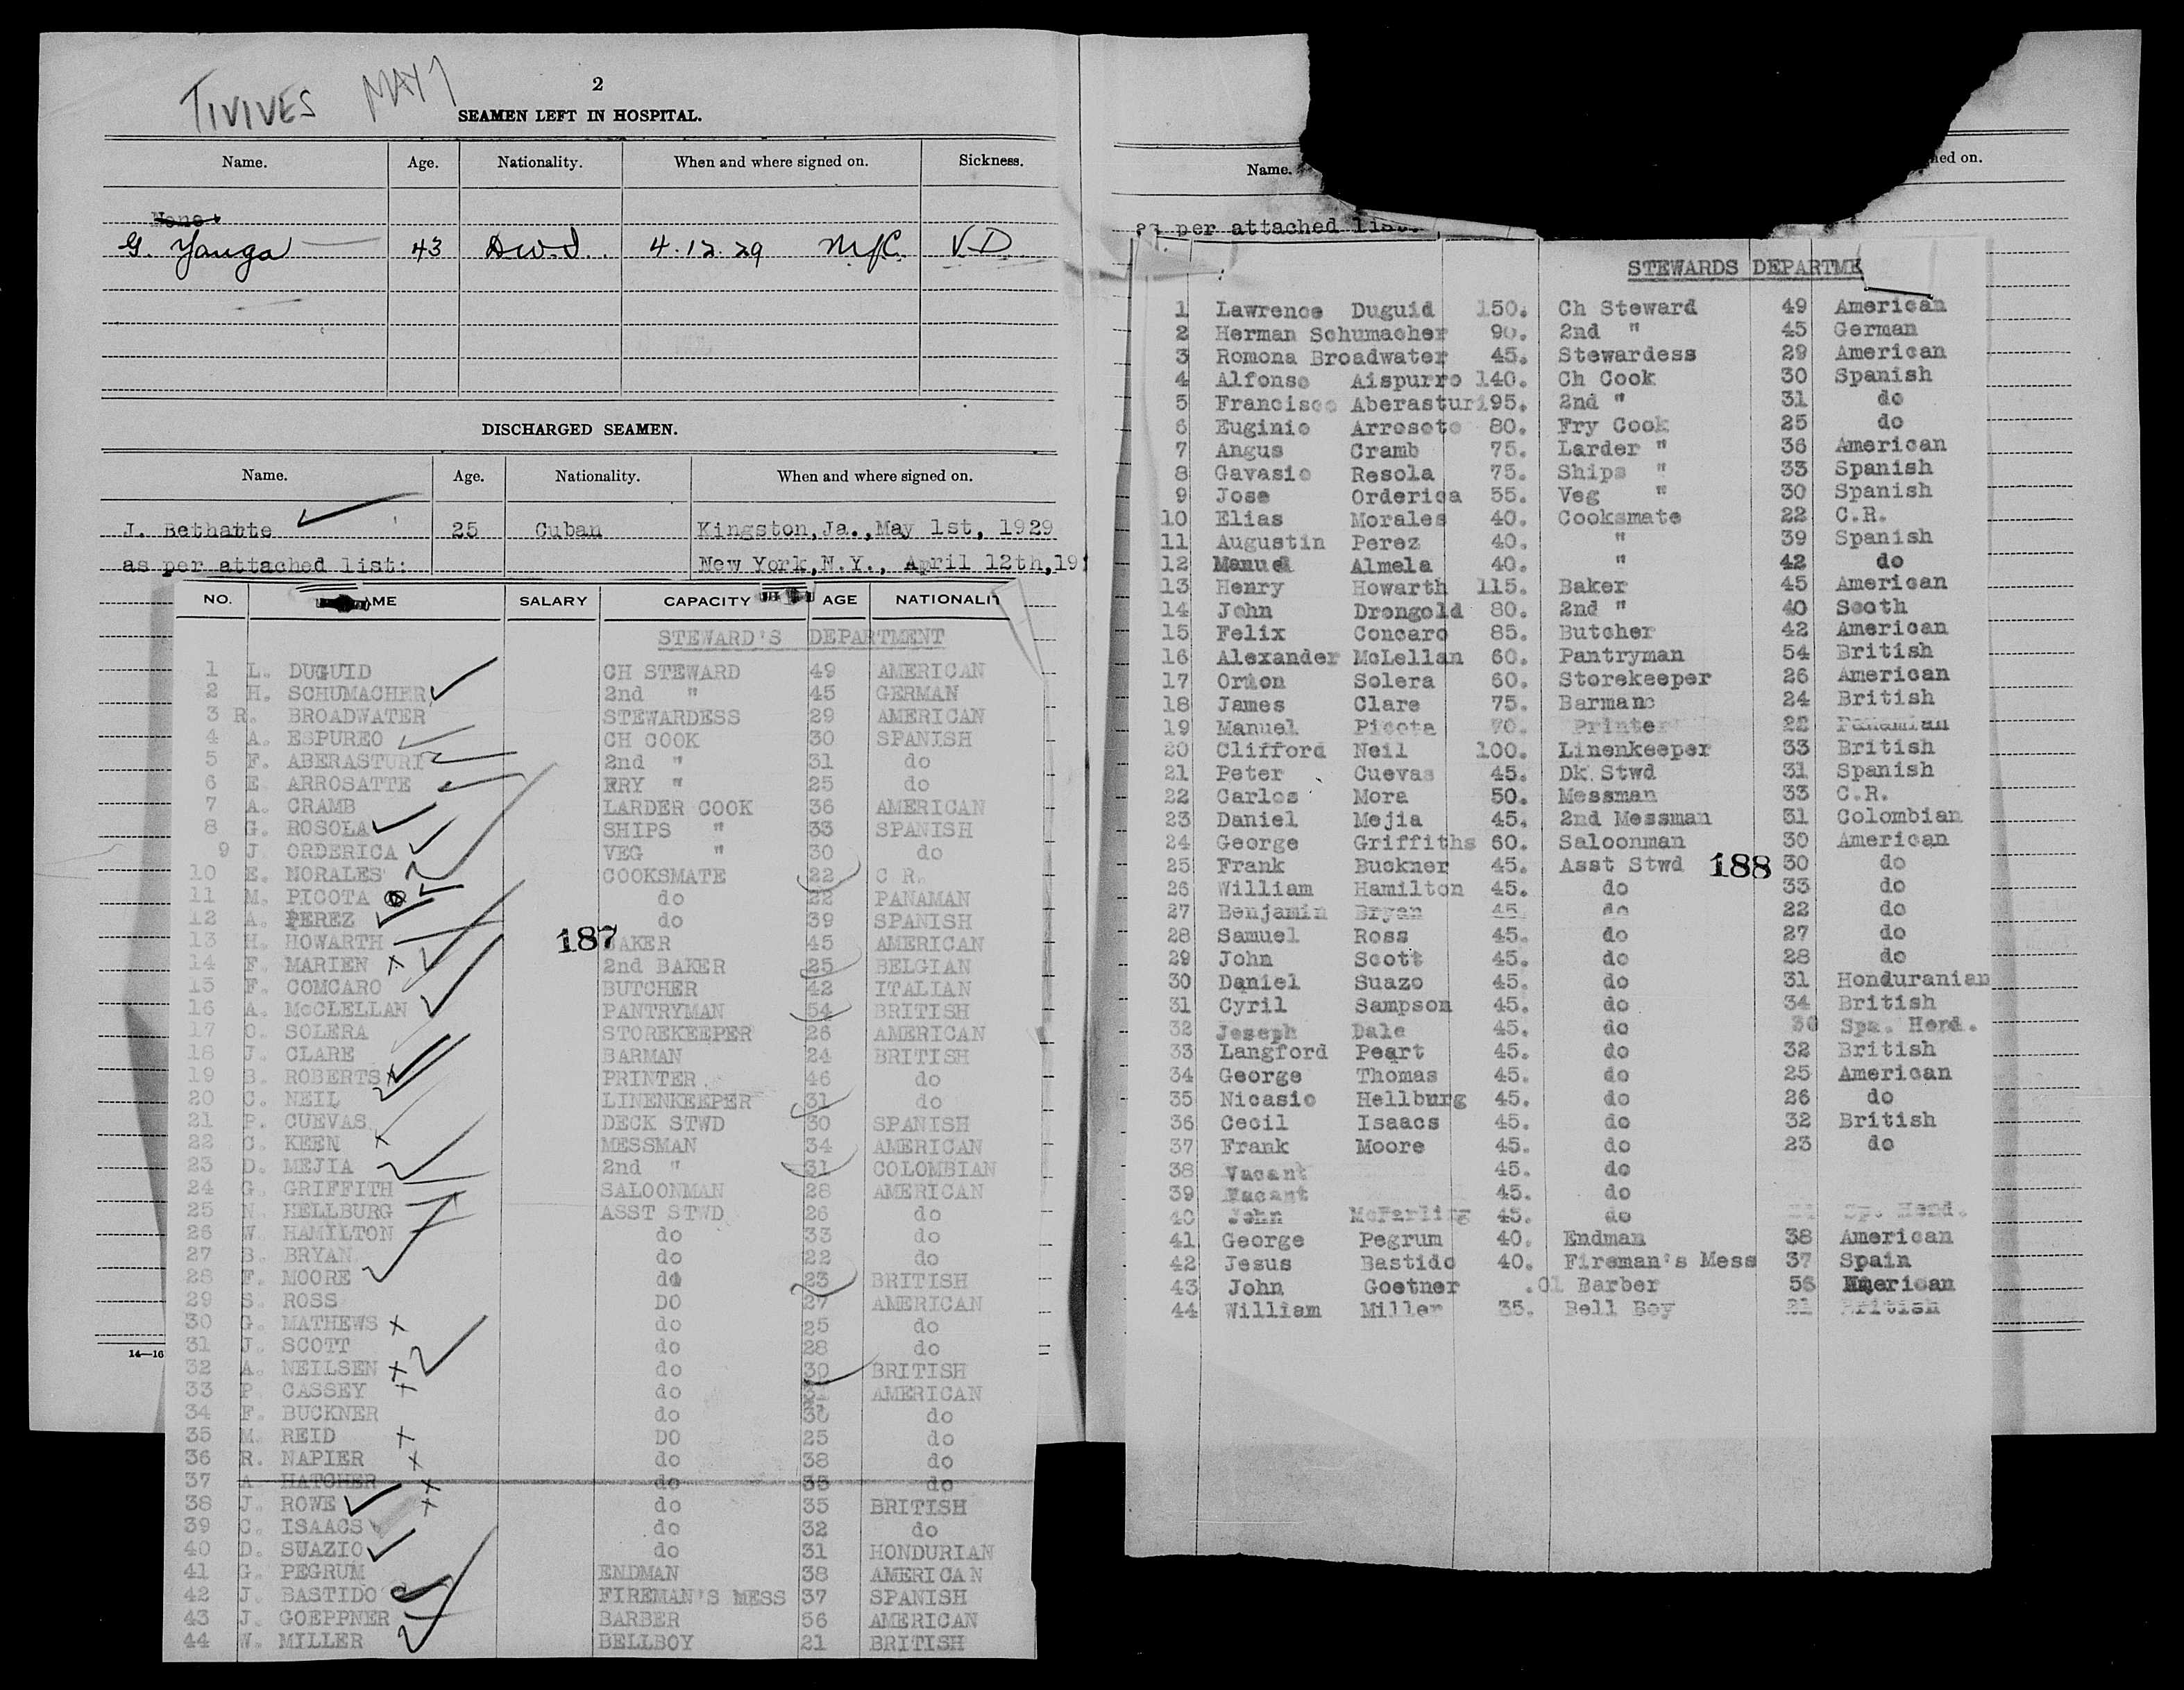 TIVIVES MAY 7
2
SEAMEN LEFT IN HOSPITAL.
Name. Age. Nationality. When and where signed on. Sickness.
None.
G. Yanga 43 D.W.I. 4.12.29 N.Y.C. V.D.
DISCHARGED SEAMEN.
Name. Age. Nationality. When and where signed on.
J. Betharte 25 Cuban Kingston, Ja., May 1st, 1929
as per attached list: New York, N.Y., April 12th, 19
NO. SALARY CAPACITY AGE NATIONALIT
STEWARD'S DEPARTMENT
1 L. DUGUID CH STEWARD 49 AMERICAN
2 H. SCHUMACHER 2nd " 45 GERMAN
3 R. BROADWATER STEWARDESS 29 AMERICAN
4 A. ESPUREO CH COOK 30 SPANISH
5 F. ABERASTURI 2nd " 31 do
6 E. ARROSATTE FRY " 25 do
7 A. CRAMB LARDER COOK 36 AMERICAN
8 G. ROSOLA SHIPS " 33 SPANISH
9 J. ORDERICA VEG " 30 do
10 E. MORALES COOKSMATE 22 C R.
11 M. PICOTA do 22 PANAMAN
12 A. PEREZ do 39 SPANISH
13 H. HOWARTH BAKER 45 AMERICAN
187
14 F. MARIEN 2nd BAKER 25 BELGIAN
15 F. COMCARO BUTCHER 42 ITALIAN
16 A. McCLELLAN PANTRYMAN 54 BRITISH
17 O. SOLERA STOREKEEPER 26 AMERICAN
18 J. CLARE BARMAN 24 BRITISH
19 B. ROBERTS PRINTER. 46 do
20 C. NEIL LINENKEEPER 31 do
21 P. CUEVAS. DECK STWD 30 SPANISH
22 C. KEEN MESSMAN 34 AMERICAN
23 D. MEJIA 2nd " 31 COLOMBIAN
24 G. GRIFFITH SALOONMAN 28 AMERICAN
25 N. HELLBURG ASST STWD 26 do
26 W. HAMILTON do 33 do
27 B. BRYAN. do 22 do
28 F. MOORE do 23 BRITISH
29 S. ROSS DO 27 AMERICAN
30 G. MATHEWS do 25 do
31 J. SCOTT do 28 do
32 A. NEILSEN do 30 BRITISH
33 P. CASSEY do 31 AMERICAN
34 F. BUCKNER do 30 do
35 M. REID DO 25 do
36 R. NAPIER do 38 do
37 A HATCHER do 33 do
38 J. ROWE do 35 BRITISH
39 C. ISAACS do 32 do
40 D. SUAZIO do 31 HONDURIAN
41 G. PEGRUM ENDMAN 38 AMERICAN
42 J. BASTIDO FIREMAN'S MESS 37 SPANISH
43 J. GOEPPNER BARBER 56 AMERICAN
44 W. MILLER BELLBOY 21 BRITISH
14—16
Name. ned on.
as per attached list.
STEWARDS DEPARTME
1 Lawrence Duguid 150. Ch Steward 49 American
2 Herman Schumacher 90. 2nd " 45 German
3 Romona Broadwater 45. Stewardess 29 American
4 Alfonso Aispurro 140. Ch Cook 30 Spanish
5 Francisco Aberasturi 95. 2nd " 31 do
6 Euginio Arrosote 80. Fry Cook 25 do
7 Angus Cramb 75. Larder " 36 American
8 Gavasio Resola 75. Ships " 33 Spanish
9 Jose Orderica 55. Veg " 30 Spanish
10 Elias Morales 40. Cooksmate 22 C.R.
11 Augustin Perez 40. " 39 Spanish
12 Manuel Almela 40. " 42 do
13 Henry Howarth 115. Baker 45 American
14 John Drongold 80. 2nd " 40 Scoth
15 Felix Concaro 85. Butcher 42 American
16 Alexander McLellan 60. Pantryman 54 British
17 Orion Solera 60. Storekeeper 26 American
18 James Clare 75. Barman 24 British
19 Manuel Picota 70. Printer 22 Panamian
20 Clifford Neil 100. Linenkeeper 33 British
21 Peter Cuevas 45. Dk. Stwd 31 Spanish
22 Carlos Mora 50. Messman 33 C.R.
23 Daniel Mejia 45. 2nd Messman 31 Colombian
24 George Griffiths 60. Saloonman 30 American
25 Frank Buckner 45. Asst Stwd 188 30 do
26 William Hamilton 45. do 33 do
27 Benjamin Bryan 45. do 22 do
28 Samuel Ross 45. do 27 do
29 John Scott 45. do 28 do
30 Daniel Suazo 45. do 31 Honduranian
31 Cyril Sampson 45. do 34 British
32 Joseph Dale 45. do 36 Spa. Hond.
33 Langford Peart 45. do 32 British
34 George Thomas 45. do 25 American
35 Nicasio Hellburg 45. do 26 do
36 Cecil Isaacs 45. do 32 British
37 Frank Moore 45. do 23 do
38 Vacant 45. do
39 Vacant 45. do
40 John McFarling 45. do Sp. Hond.
41 George Pegrum 40. Endman 38 American
42 Jesus Bastido 40. Fireman's Mess 37 Spain
43 John Goetner .01 Barber 56 American
44 William Miller 35. Bell Boy 21 British